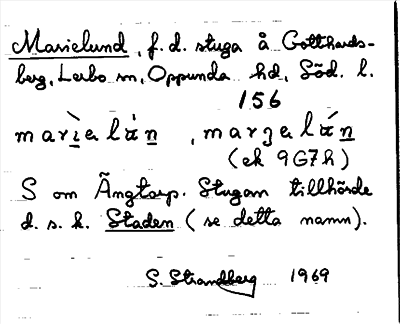 Marielund, f.d. stuga å Gotthards-
berg, Lerbo sn, Oppunda hd, Söd. l.
156
(ek 9G7h)
S om Ängtorp. Stugan tillhörde
d. s. k. Staden (se detta namn).
S. Strandberg 1969